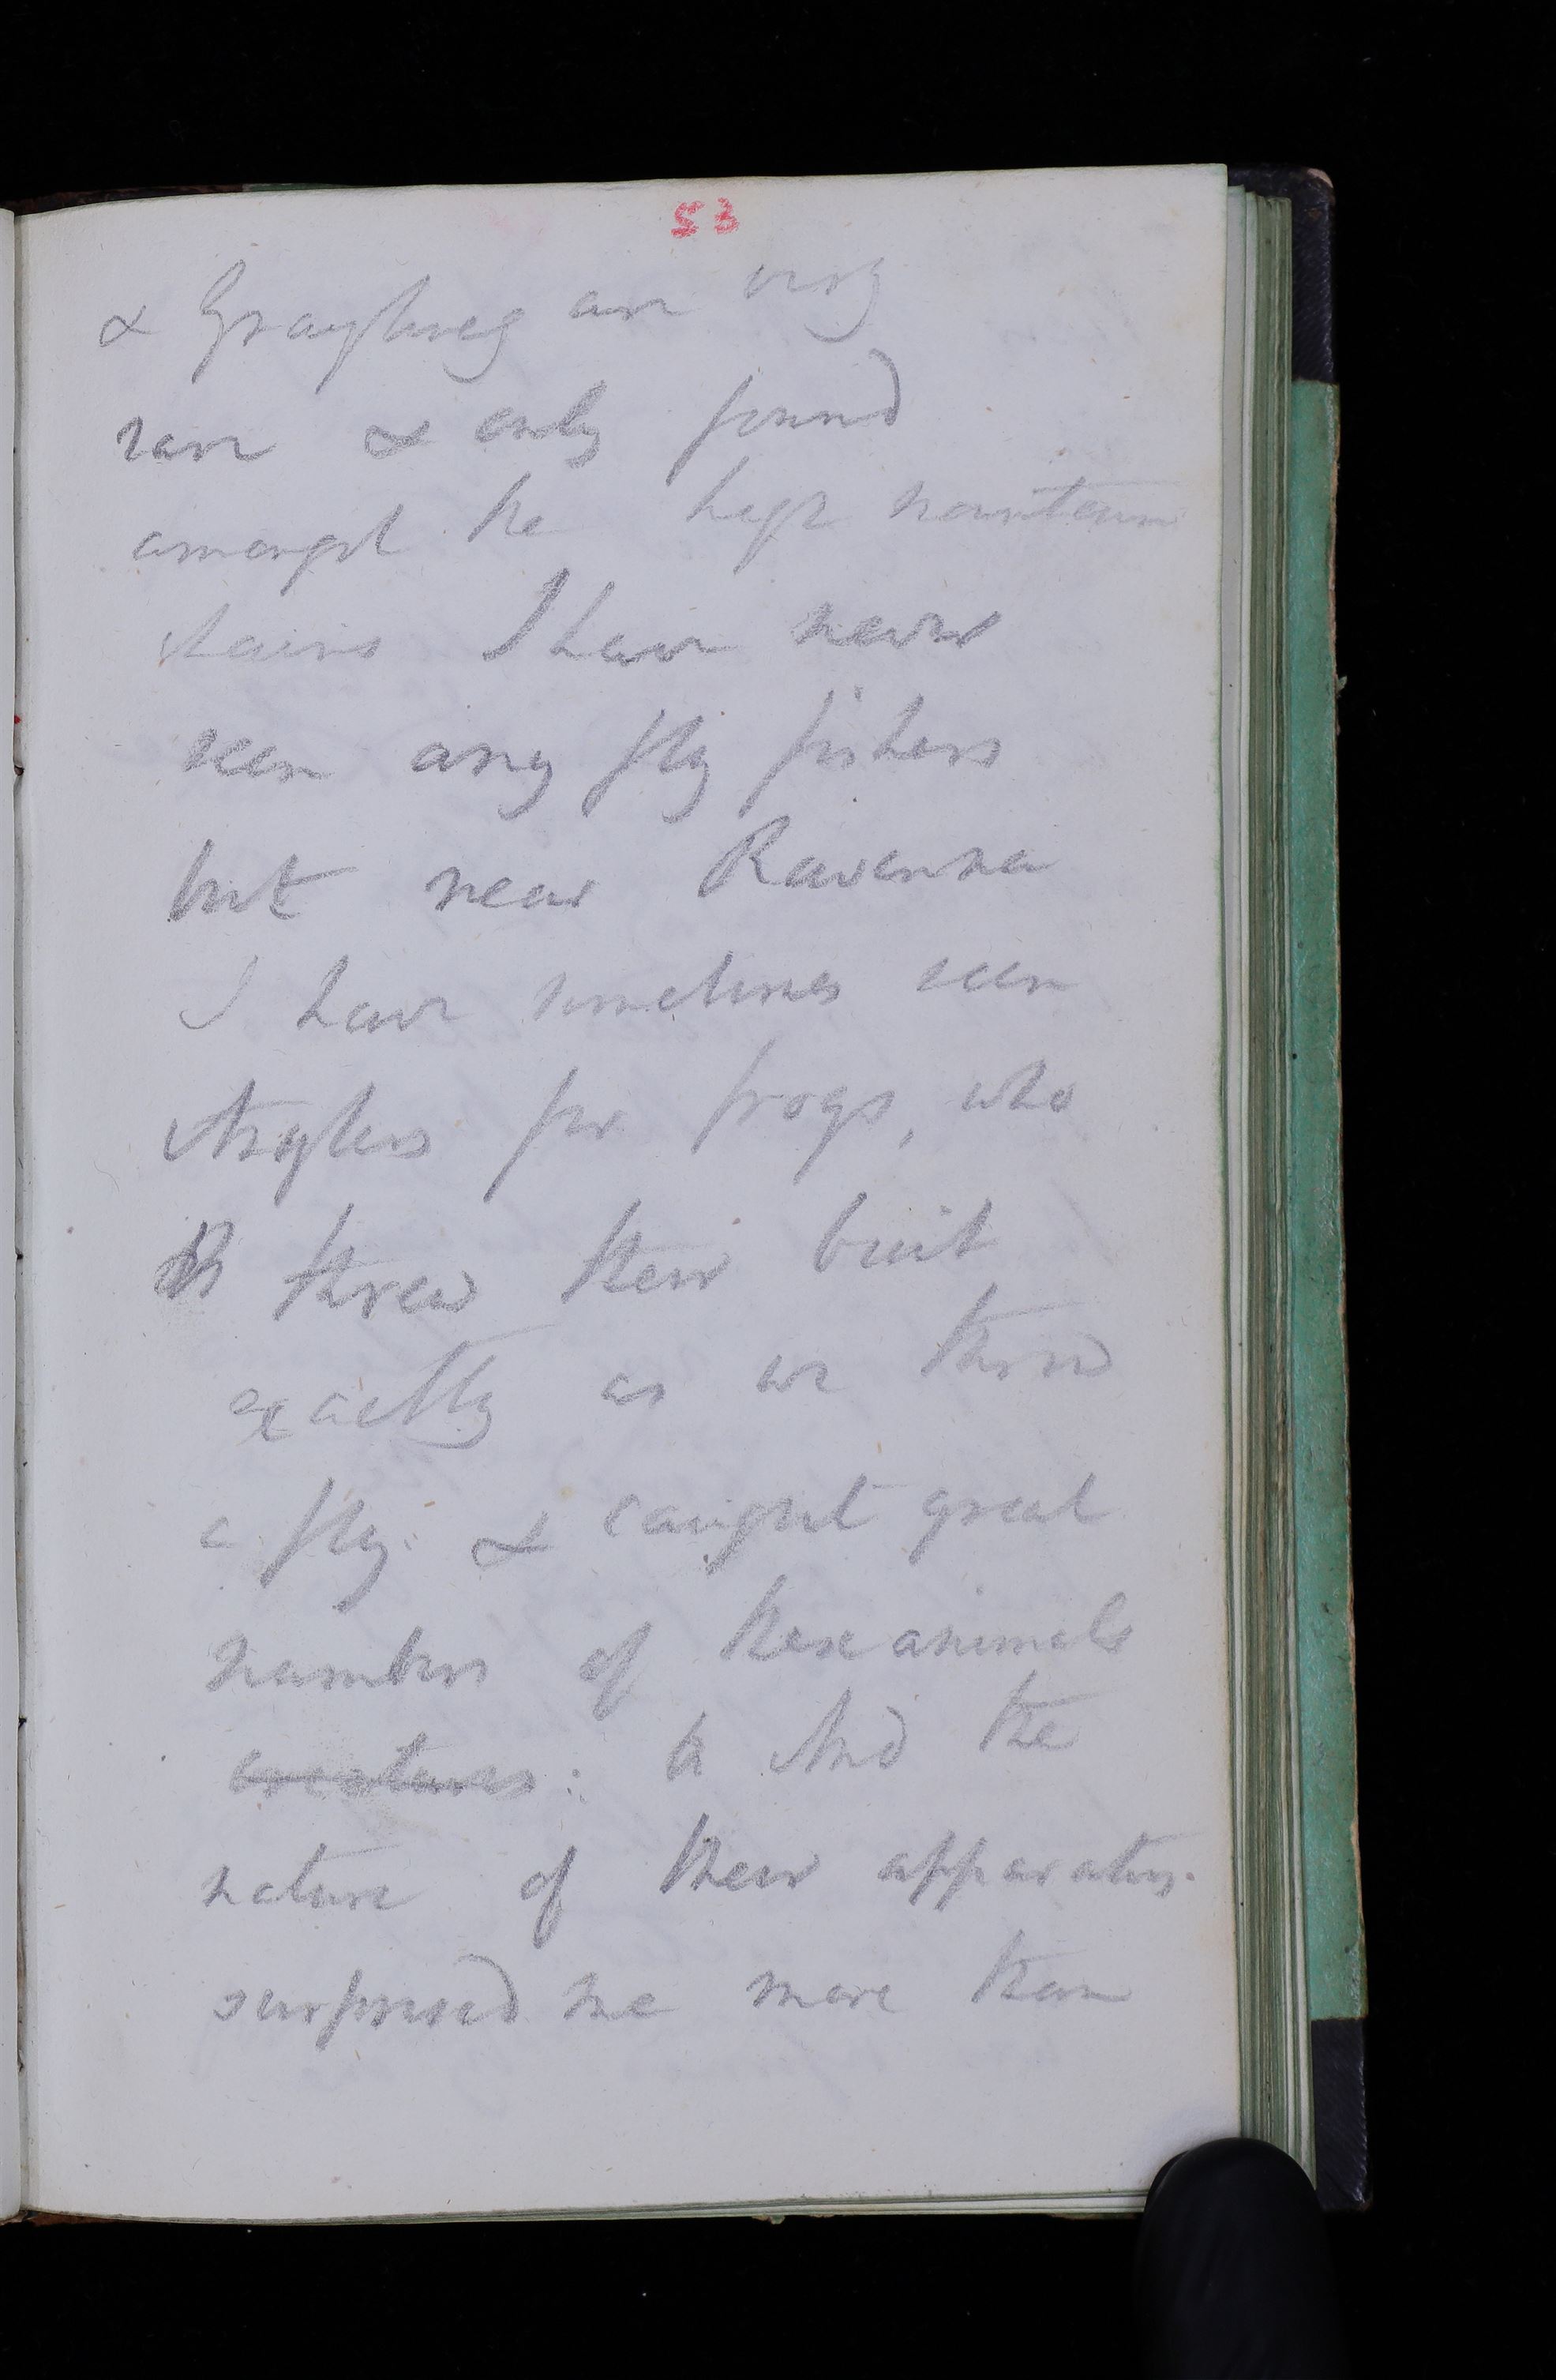 53
& Grayling are very
rare & only found
amongst the high mountain
chains I have never
seen any fly fishers
but near Ravenna
I have sometimes seen
Anglers for frogs, who
threw their bait
exactly as we throw
a fly: & caught great
numbers of these animals
creatures: And the
nature of their apparatus
surprised me more than